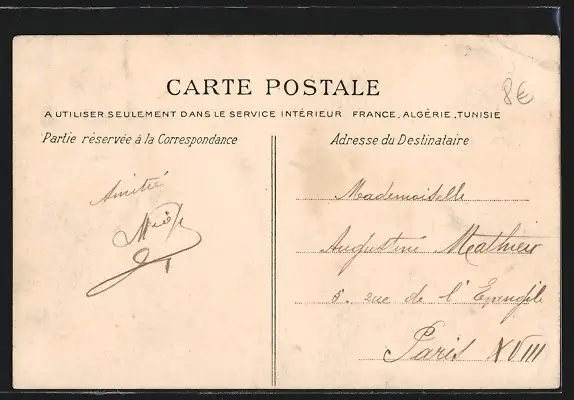 8€
CARTE POSTALE
A UTILISER SEULEMENT DANS LE SERVICE INTÉRIEUR FRANCE, ALGÉRIE, TUNISIE
Partie réservée à la Correspondance
Adresse du Destinataire
Amitié
Mademoiselle
Augustine Mathieu
5. rue de l'Evangile
Paris XVIII